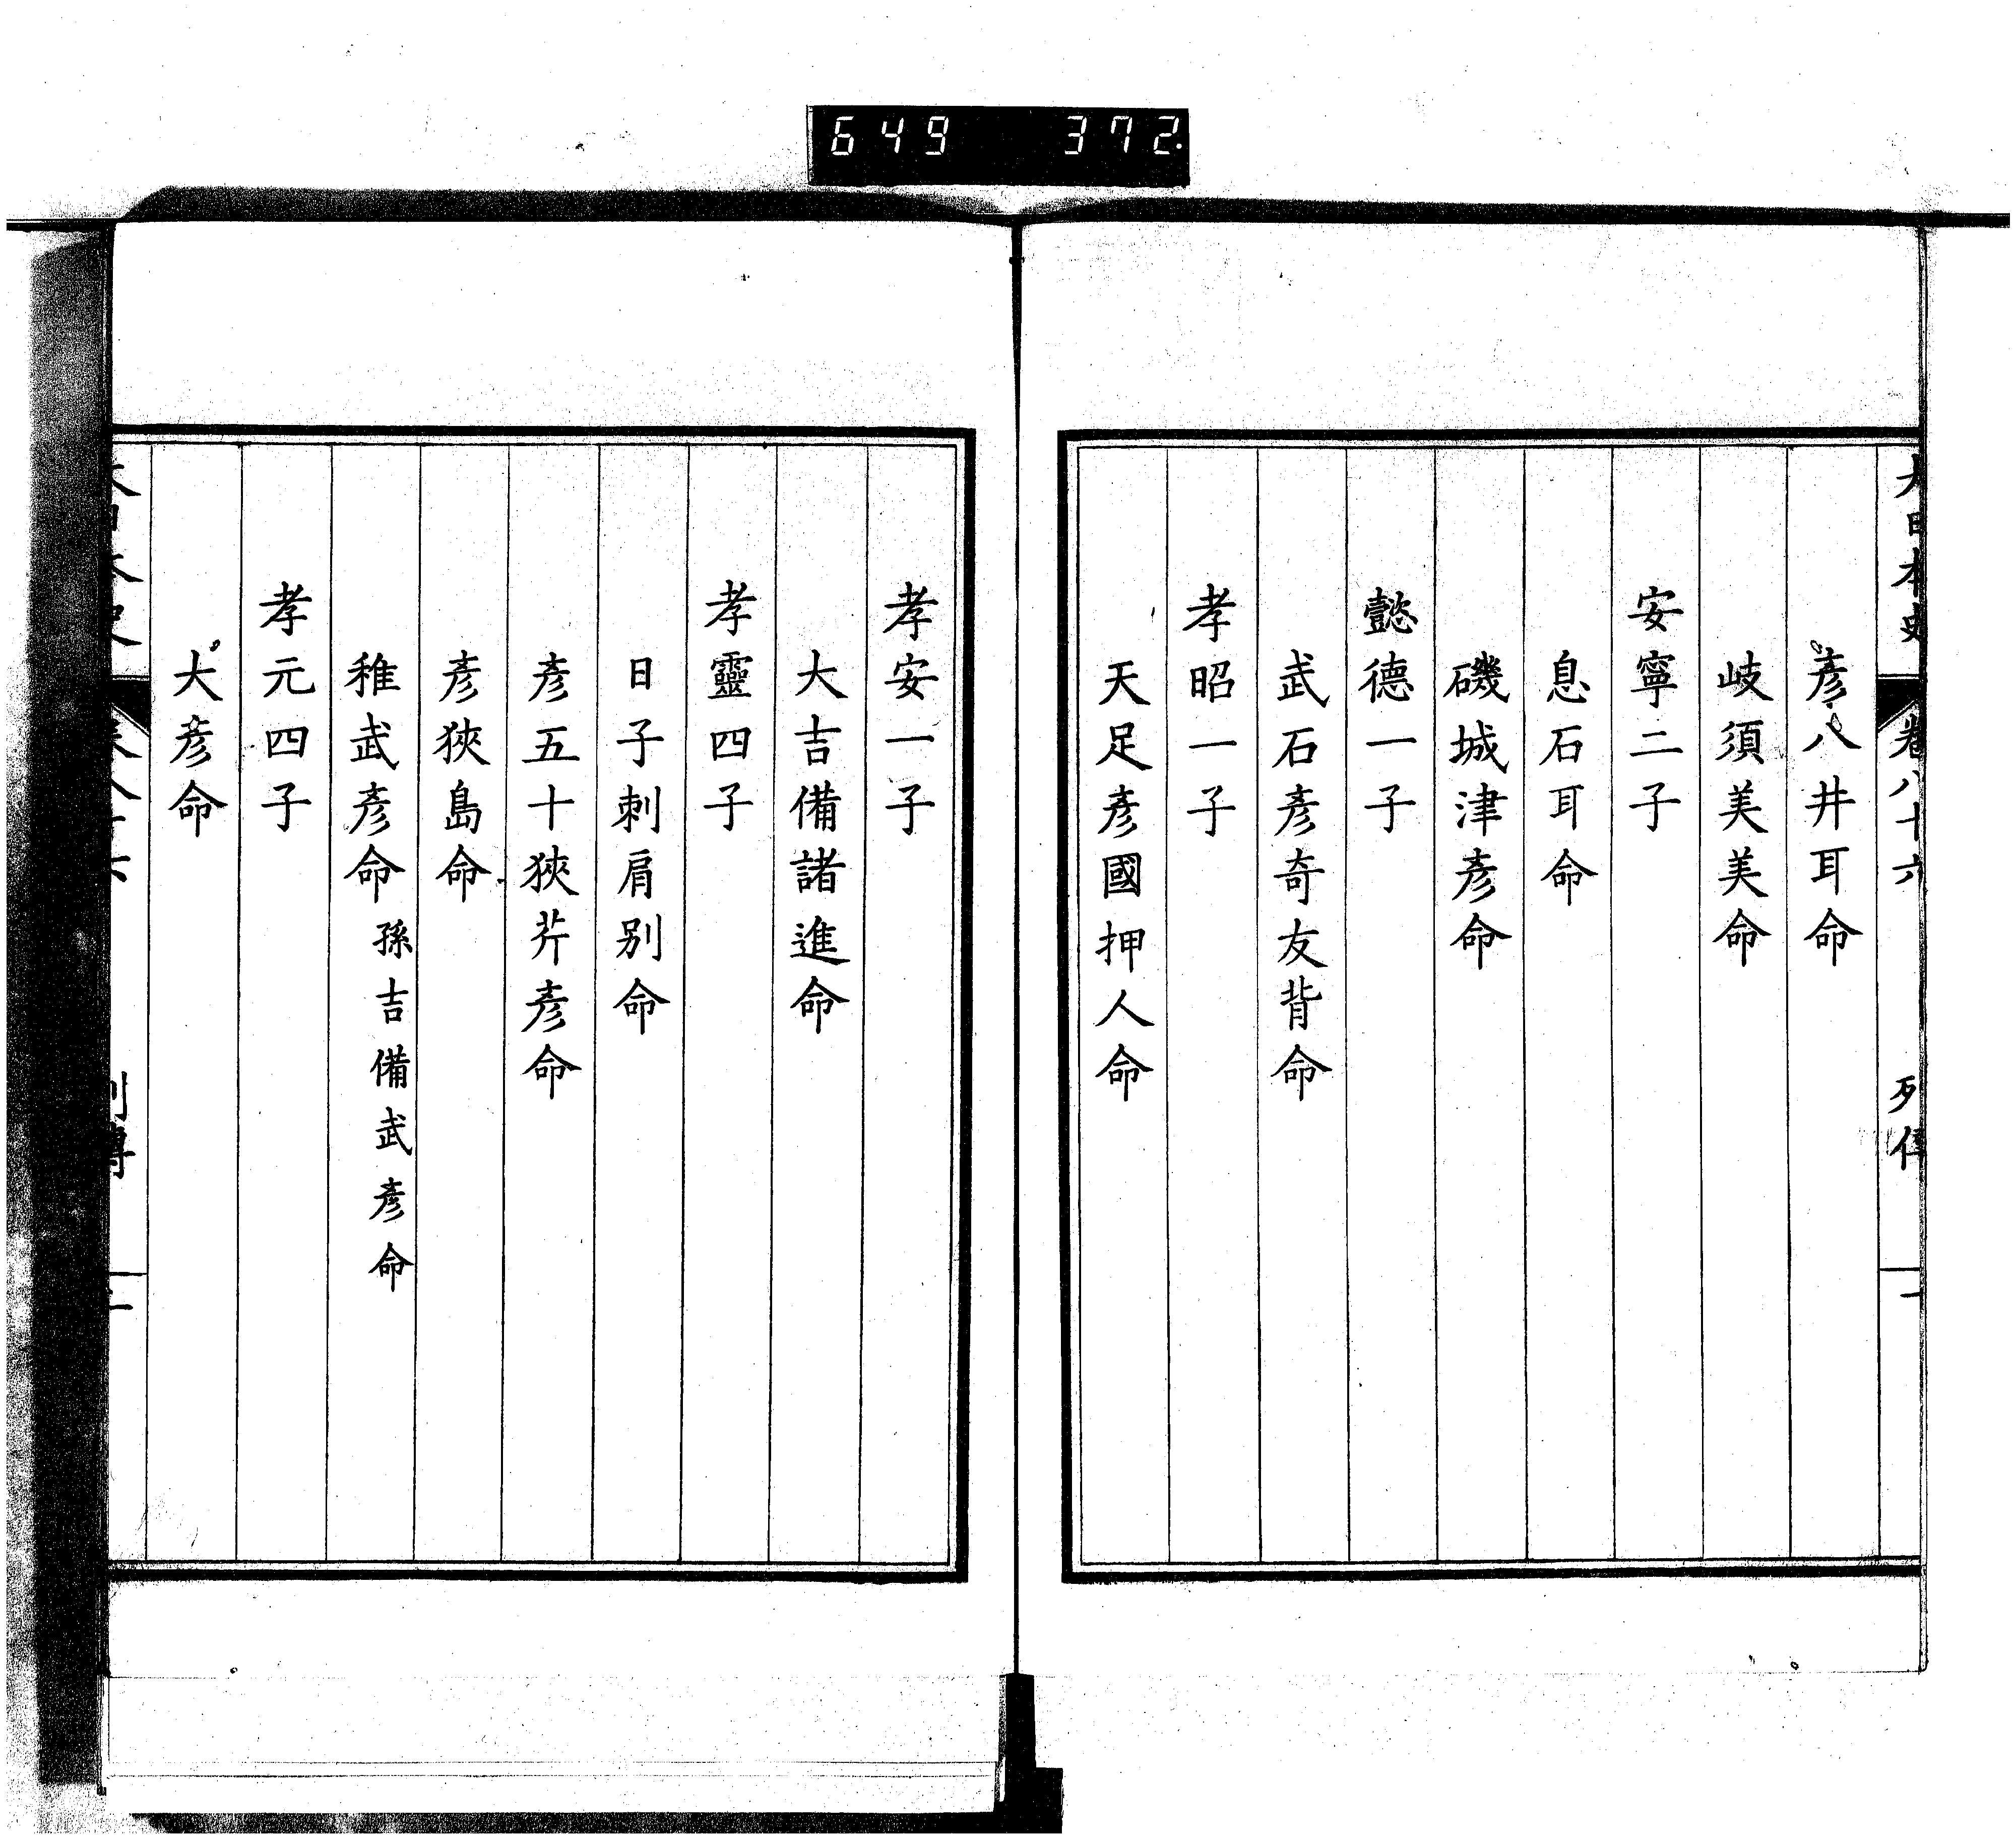 649 372.
大日本史 卷八十六 列傳 二
彥八井耳命
岐須美美命
安寧二子
息石耳命
磯城津彥命
懿德一子
武石彥奇友背命
孝昭一子
天足彥國押人命
孝安一子
大吉備諸進命
孝靈四子
日子刺肩别命
彥五十狹芹彥命
彥狹島命
稚武彥命 孫吉備武彥命
孝元四子
大彥命